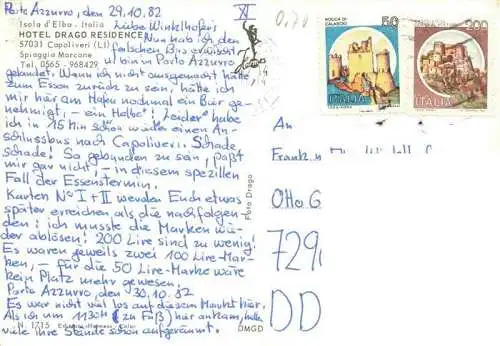 Porto Azzurro, den 29.10.82
XI
Isola d'Elba - Italia
HOTEL DRAGO RESIDENCE
57031 Capoliveri (LI)
Spiaggia Morcone
Tel. 0565 - 968429
Liebe Winkelhofer,
Nun hab ich den
falschen Bus erwischt
u. bin in Porto Azzurro
gelandet. Wenn ich nicht ausgemacht hätte,
zum Essen zurück zu sein, hätte ich
mir hier am Hafen nochmal ein Bier ge-
nehmigt, - ein Halbe! Leider habe
ich in 15 Min schon wieder einen An-
schlussbus nach Capoliveri. Schade
Schade! So gebunden zu sein, paßt
mir gar nicht, - in diesem speziellen
Fall der Essenstermin.
Karten No I + II werden Euch etwas
später erreichen als die nachfolgen-
den: ich musste die Marken wie-
der ablösen! 200 Lire sind zu wenig!
Es waren jeweils zwei 100 Lire-Mar-
ken, - für die 50 Lire-Marke wäre
kein Platz mehr gewesen.
Porto Azzurro, den 30.10.82
Es war nicht viel los auf diesem Markt hier.
Als ich um 1130h (zu Fuß) hier ankam, hatten
viele ihre Stände schon aufgeräumt.
N. 1715
Foto Drago
DMGD
ROCCA DI
CALASCIO
50
ITALIA
200
ITALIA
An
Otto G
729
DD